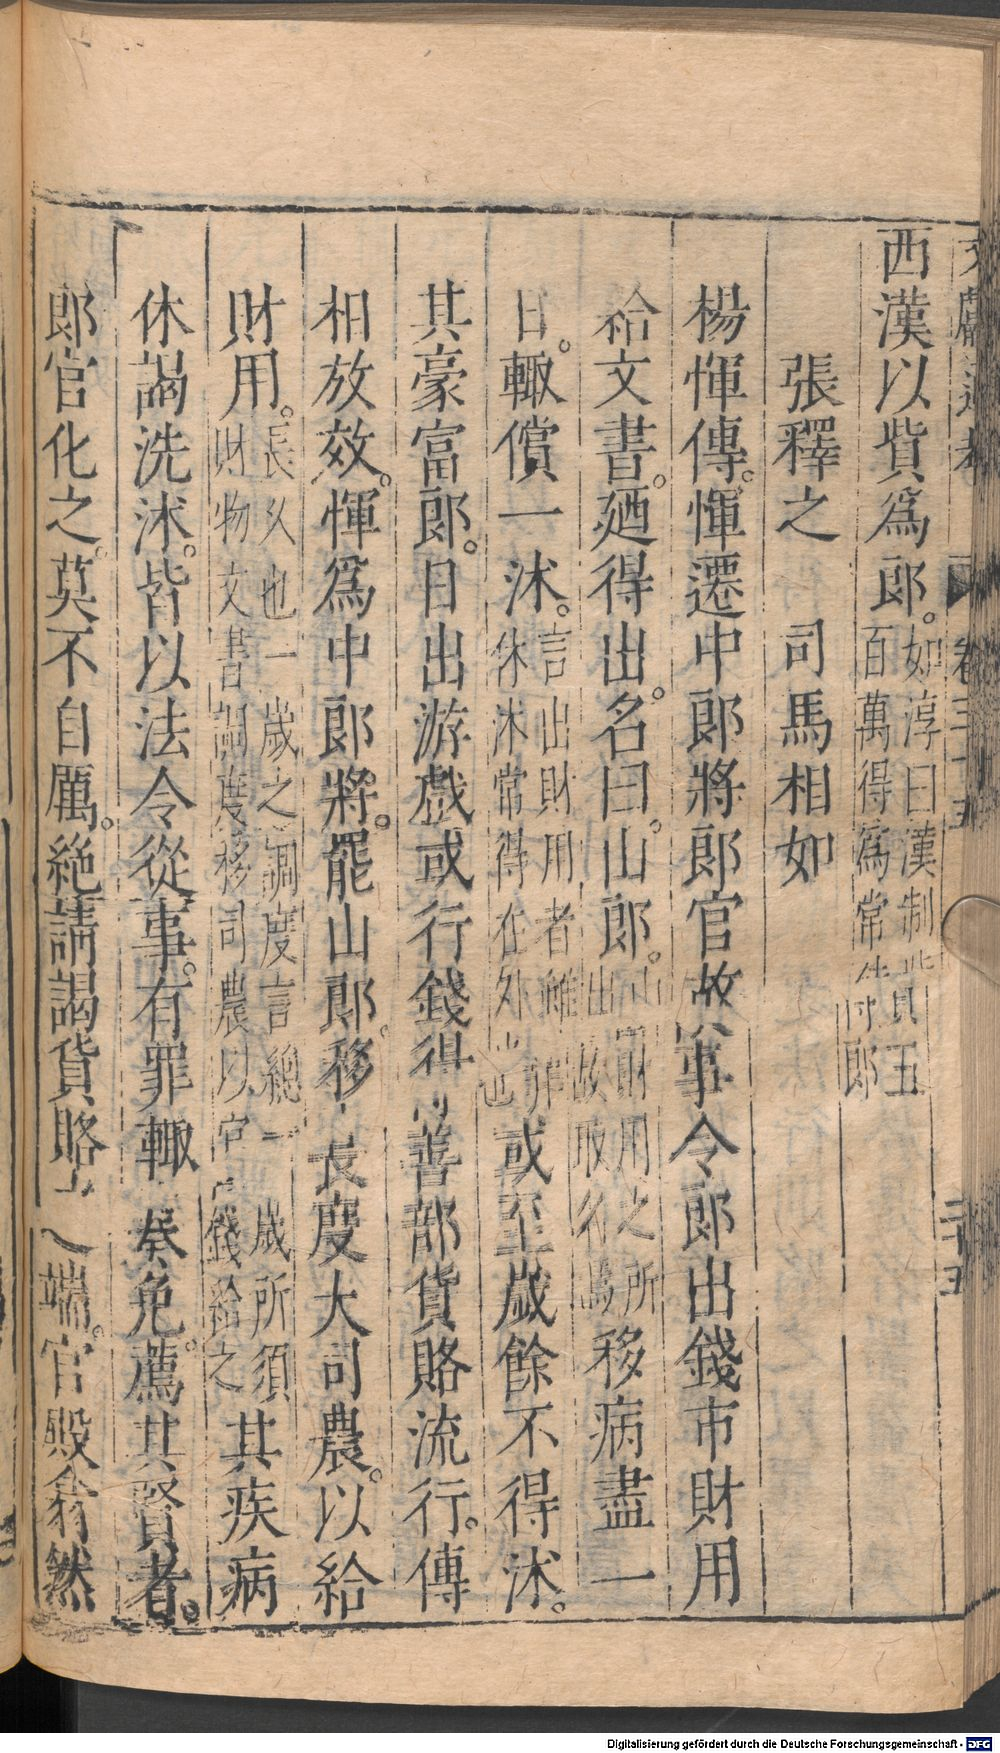 西漢以貲爲郎。如淳曰漢制貲五百萬得爲常侍郎
張釋之　司馬相如
楊惲傳。惲遷中郎將郎官故事令郎出錢市財用
給文書。廼得出。名曰山郎。山財用之所出故取名焉移病盡一
日。輙償一沐。言出財用者雖非休沐常得在外也或至歲餘不得沐。
其豪富郎。日出游戲或行錢得善部貨賂流行。傳
相放效。惲爲中郎將。罷山郎。移長度大司農。以給
財用。長久也一歲之調度言總一歲所須財物文書調度移司農以官錢給之其疾病
休謁洗沐。皆以法令從事。有罪輙奏免。薦其賢者。
郎官化之。莫不自厲。絶請謁貨賂之端。官殿翕然
文獻通考　卷三十五　三十五
Digitalisierung gefördert durch die Deutsche Forschungsgemeinschaft - DFG